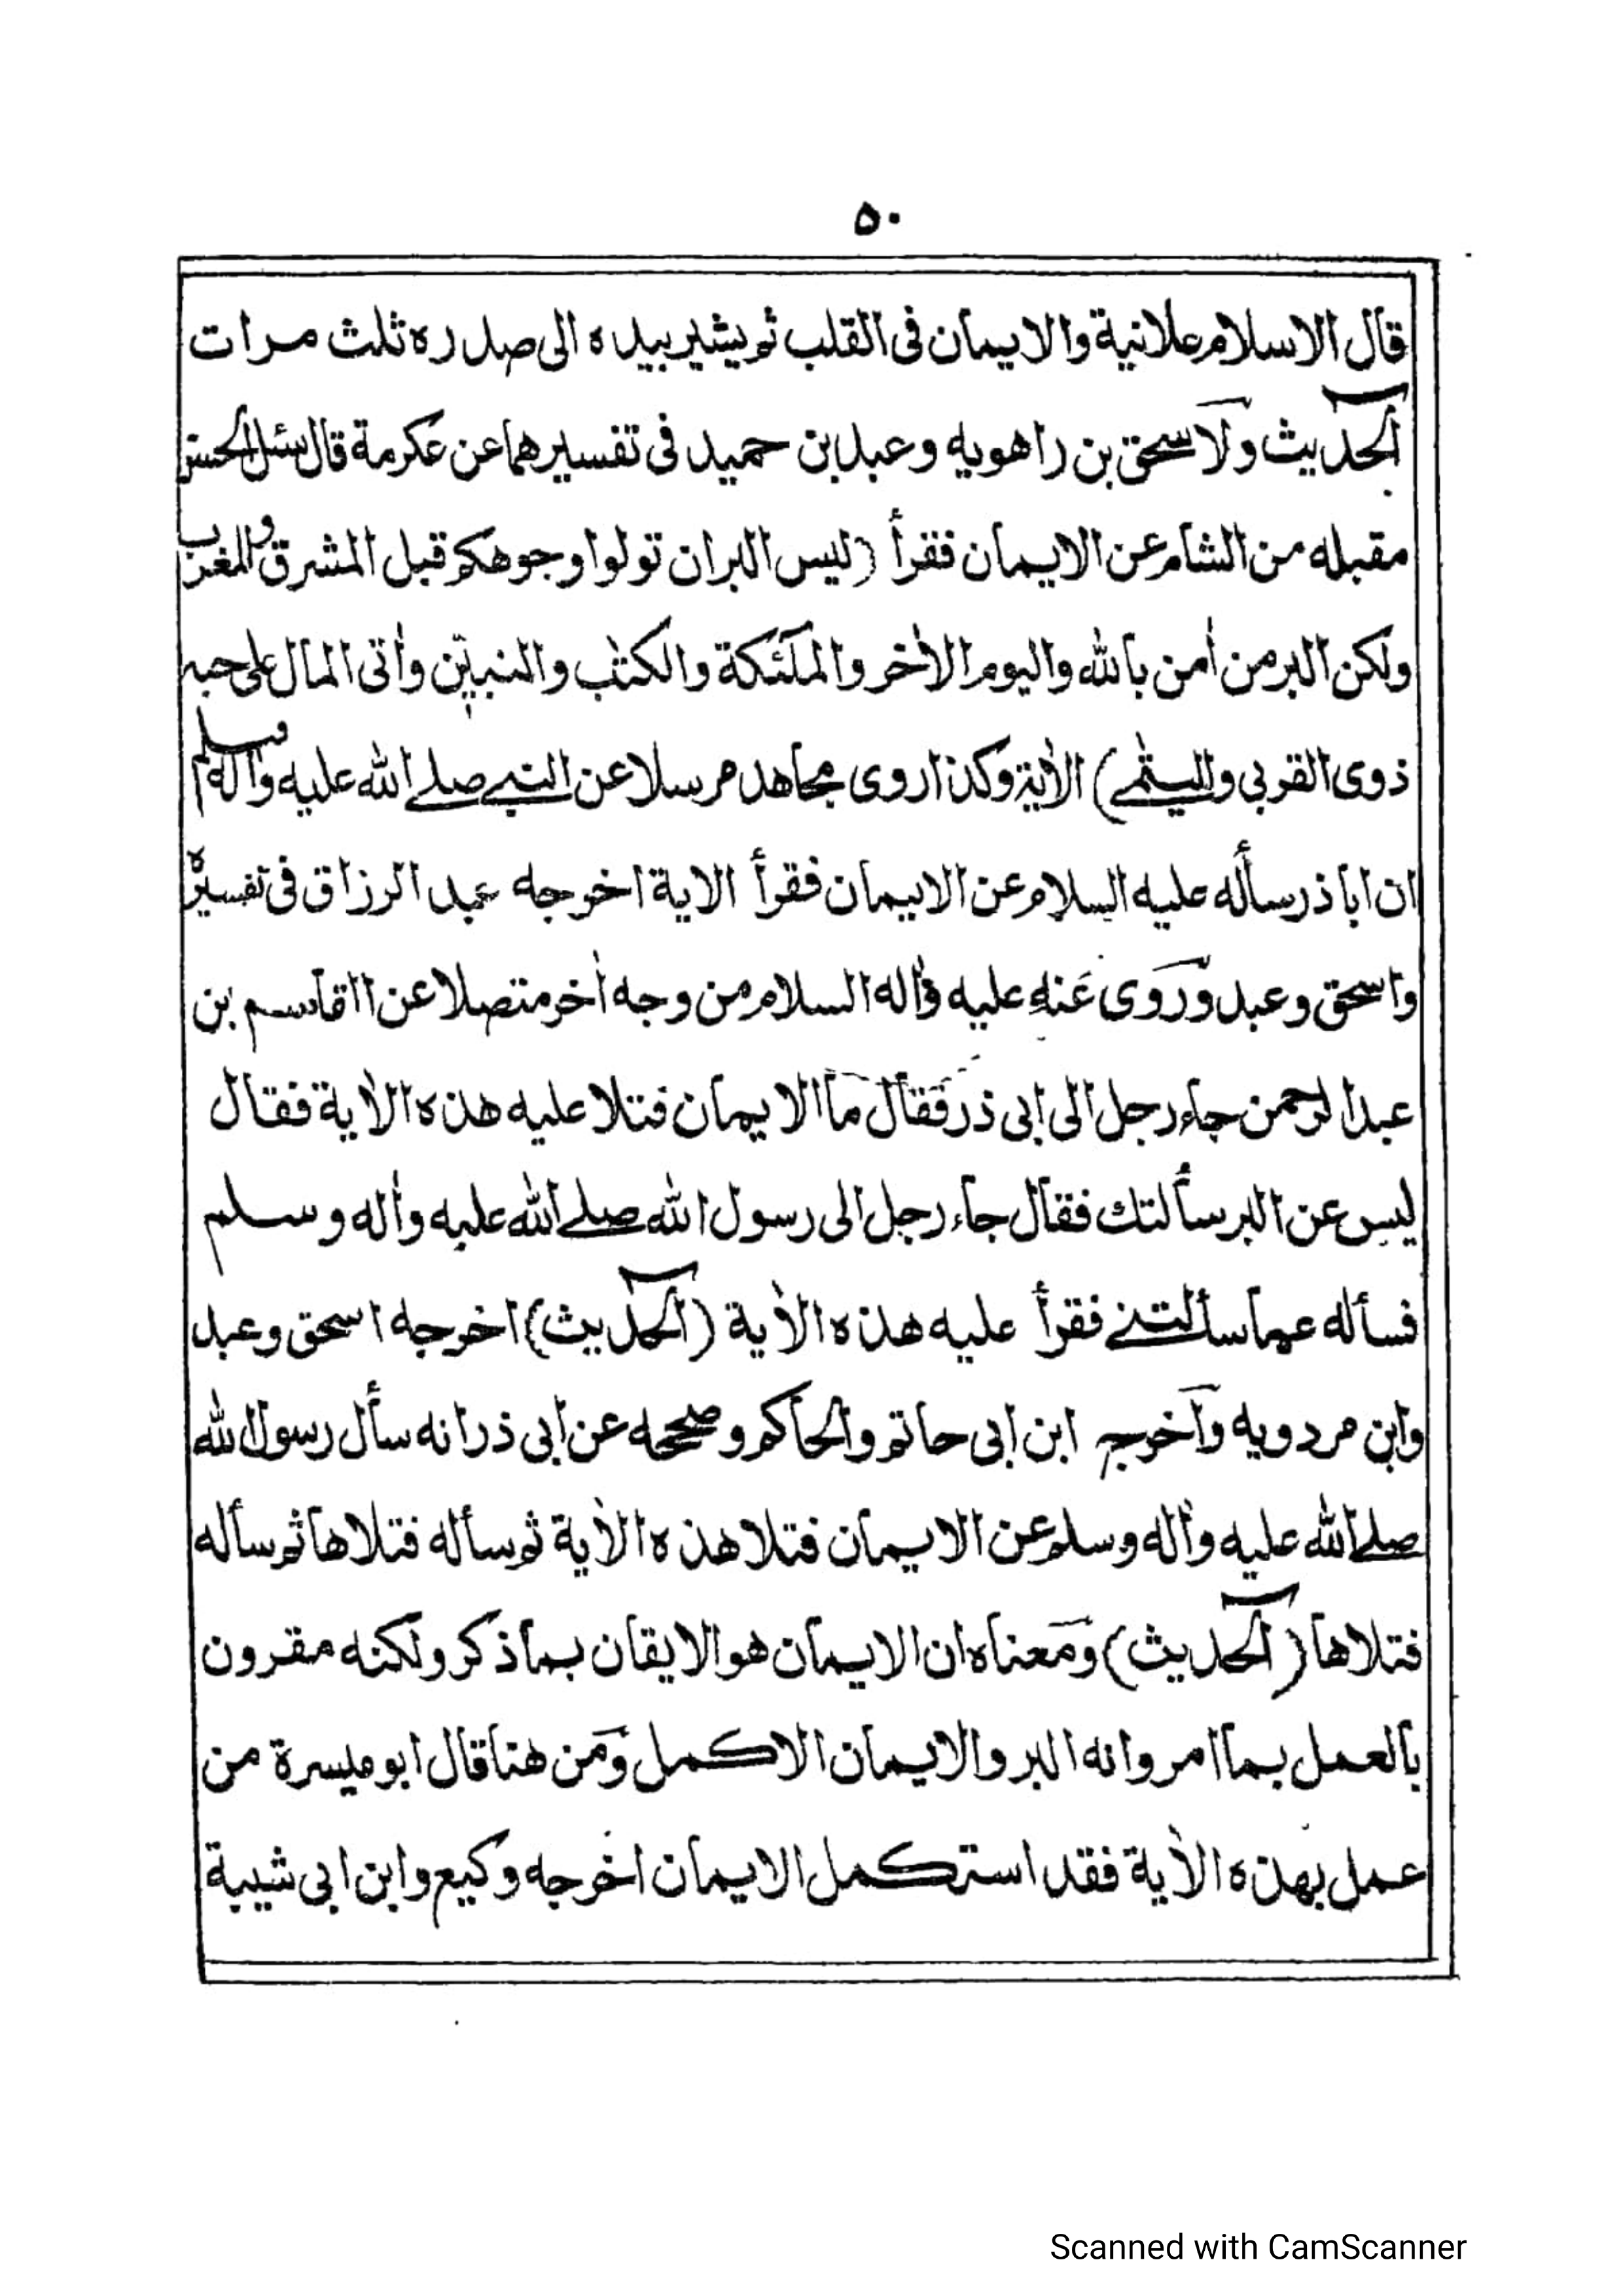 ٥٠
قال الاسلام علانية والايمان فى القلب ثم يشير بيده الى صدره ثلث مرات
الحديث ولاسحق بن راهويه وعبد بن حميد فى تفسيرهما عن عكرمة قال سئل الحسن
مقبله من الشام عن الايمان فقرأ (ليس البر ان تولوا وجوهكم قبل المشرق والمغرب
ولكن البر من اٰمن بالله واليوم الاٰخر والملٰئكة والكتٰب والنبيّن واٰتى المال على حبه
ذوى القربى واليتٰمے) الاٰية وكذا روى مجاهد مرسلا عن النبے صلے الله عليه واٰله وسلم
ان ابا ذر سأله عليه السلام عن الايمان فقرأ الاية اخرجه عبد الرزاق فى تفسيره
واسحق وعبد وروى عنه عليه واٰله السلام من وجه اٰخر متصلا عن القاسم بن
عبد الرحمن جاء رجل الى ابى ذر فقال ما الايمان فتلا عليه هذه الاٰية فقال
ليس عن البر سألتك فقال جاء رجل الى رسول الله صلے الله عليه واٰله وسلم
فسأله عما سألتنے فقرأ عليه هذه الاٰية (الحديث) اخرجه اسحق وعبد
وابن مردويه واخرج ابن ابى حاتم والحاكم وصححه عن ابى ذر انه سأل رسول الله
صلے الله عليه واٰله وسلم عن الايمان فتلا هذه الاٰية ثم سأله فتلاها ثم سأله
فتلاها (الحديث) ومعناه ان الايمان هو الايقان بما ذكر ولكنه مقرون
بالعمل بما امر وانه البر والايمان الاكمل ومن هنا قال ابو ميسرة من
عمل بهذه الاٰية فقد استكمل الايمان اخرجه وكيع وابن ابى شيبة
Scanned with CamScanner